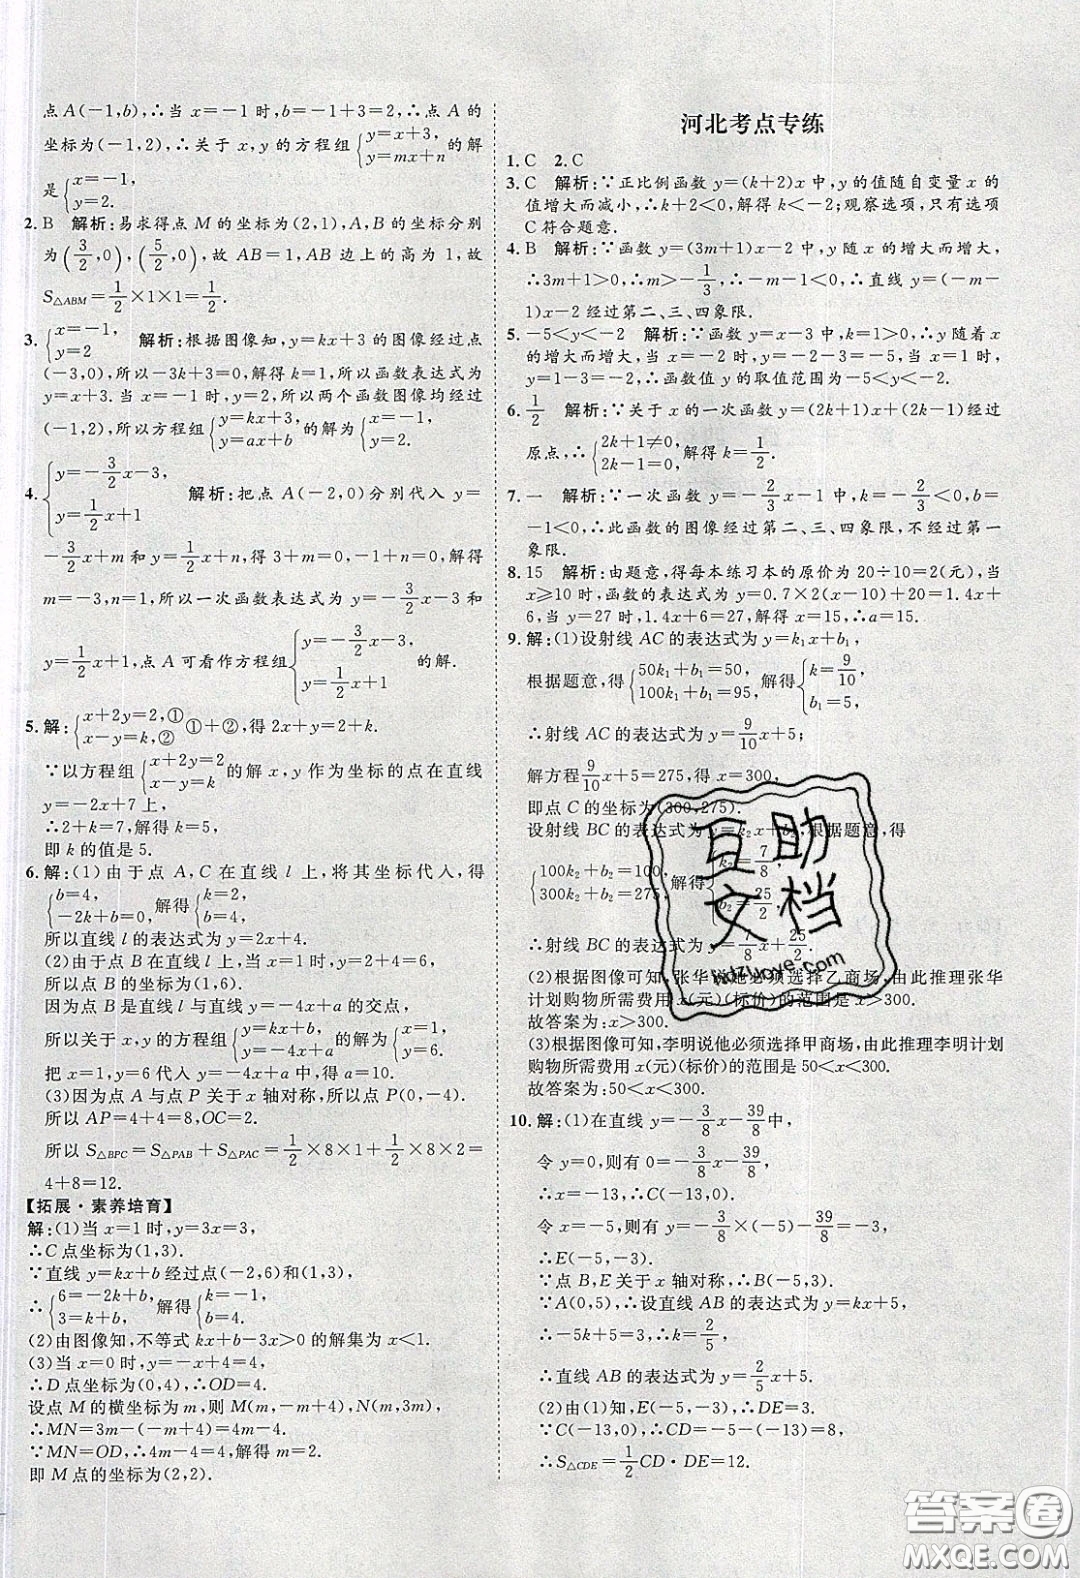 点A(-1,b),∴当 x=-1 时,b=-1+3=2,∴点 A 的
坐标为(-1,2),∴关于 x,y 的方程组{y=x+3, y=mx+n 的解
是{x=-1, y=2.
2. B 解析:易求得点 M 的坐标为(2,1),A,B 的坐标分别
为(3/2,0),(5/2,0),故 AB=1,AB 边上的高为 1,故
S△ABM=1/2×1×1=1/2.
3. {x=-1, y=2 解析:根据图像知,y=kx+3 的图像经过点
(-3,0),所以-3k+3=0,解得 k=1,所以函数表达式为
y=x+3.当 x=-1 时,y=2,所以两个函数图像均经过
(-1,2),所以方程组{y=kx+3, y=ax+b 的解为{x=-1, y=2.
4. {y=-3/2x-3, y=1/2x+1 解析:把点 A(-2,0)分别代入 y=
-3/2x+m 和 y=1/2x+n,得 3+m=0,-1+n=0,解得
m=-3,n=1,所以一次函数表达式为 y=-3/2x-3 和
y=1/2x+1,点 A 可看作方程组{y=-3/2x-3, y=1/2x+1 的解.
5. 解:{x+2y=2,① x-y=k,② ①+②,得 2x+y=2+k.
∵以方程组{x+2y=2 x-y=k 的解 x,y 作为坐标的点在直线
y=-2x+7 上,
∴2+k=7,解得 k=5,
即 k 的值是 5.
6. 解:(1)由于点 A,C 在直线 l 上,将其坐标代入,得
{b=4, -2k+b=0, 解得{b=4, k=2.
所以直线 l 的表达式为 y=2x+4.
(2)由于点 B 在直线 l 上,当 x=1 时,y=2+4=6,
所以点 B 的坐标为(1,6).
因为点 B 是直线 l 与直线 y=-4x+a 的交点,
所以关于 x,y 的方程组{y=kx+b, y=-4x+a 的解为{x=1, y=6.
把 x=1,y=6 代入 y=-4x+a,得 a=10.
(3)因为点 A 与点 P 关于 x 轴对称,所以点 P(0,-4).
所以 AP=4+4=8,OC=2.
所以 S△BPC=S△PAB+S△PAC=1/2×8×1+1/2×8×2=
4+8=12.
【拓展·素养培育】
解:(1)当 x=1 时,y=3x=3,
∴C 点坐标为(1,3).
∵直线 y=kx+b 经过点(-2,6)和(1,3),
∴{6=-2k+b, 3=k+b, 解得{k=-1, b=4.
(2)由图像知,不等式 kx+b-3x>0 的解集为 x<1.
(3)当 x=0 时,y=-x+4=4,
∴D 点坐标为(0,4),∴OD=4.
设点 M 的横坐标为 m,则 M(m,-m+4),N(m,3m),
∴MN=3m-(-m+4)=4m-4.
∵MN=OD,∴4m-4=4,解得 m=2.
即 M 点的坐标为(2,2).
河北考点专练
1. C 2. C
3. C 解析:∵正比例函数 y=(k+2)x 中,y 的值随自变量 x 的
值增大而减小,∴k+2<0,解得 k<-2;观察选项,只有选项
C 符合题意.
4. B 解析:∵函数 y=(3m+1)x-2 中,y 随 x 的增大而增大,
∴3m+1>0,∴m>-1/3,∴-m-1<0,∴直线 y=(-m-
1)x-2 经过第二、三、四象限.
5. -5<y<-2 解析:∵函数 y=x-3 中,k=1>0,∴y 随着 x
的增大而增大,当 x=-2 时,y=-2-3=-5,当 x=1 时,y=1-3=-2,
∴函数值 y 的取值范围为-5<y<-2.
6. 1/2 解析:∵关于 x 的一次函数 y=(2k+1)x+(2k-1)经过
原点,∴{2k+1≠0, 2k-1=0, 解得 k=1/2.
7. 一 解析:∵一次函数 y=-2/3x-1 中,k=-2/3<0,b=
-1<0,∴此函数的图像经过第二、三、四象限,不经过第一
象限.
8. 15 解析:由题意,得每本练习本的原价为 20÷10=2(元),当
x≥10 时,函数的表达式为 y=0.7×2(x-10)+20=1.4x+
6,当 y=27 时,1.4x+6=27,解得 x=15,∴a=15.
9. 解:(1)设射线 AC 的表达式为 y=k₁x+b₁,
根据题意,得{50k₁+b₁=50, 100k₁+b₁=95, 解得{k=9/10, b₁=5,
∴射线 AC 的表达式为 y=9/10x+5;
解方程 9/10x+5=275,得 x=300,
即点 C 的坐标为(300,275).
设射线 BC 的表达式为 y=k₂x+b₂,根据题意,得
{100k₂+b₂=100, 300k₂+b₂=275, 解得{k₂=7/8, b₂=25/2,
∴射线 BC 的表达式为 y=7/8x+25/2.
(2)根据图像可知,张华说他必须选择乙商场,由此推理张华
计划购物所需费用 x(元)(标价)的范围是 x>300.
故答案为:x>300.
(3)根据图像可知,李明说他必须选择甲商场,由此推理李明计划
购物所需费用 x(元)(标价)的范围是 50<x<300.
故答案为:50<x<300.
10. 解:(1)在直线 y=-3/8x-39/8中,
令 y=0,则有 0=-3/8x-39/8,
∴x=-13,∴C(-13,0).
令 x=-5,则有 y=-3/8×(-5)-39/8=-3,
∴E(-5,-3).
∵点 B,E 关于 x 轴对称,∴B(-5,3).
∵A(0,5),∴设直线 AB 的表达式为 y=kx+5,
∴-5k+5=3,∴k=2/5,
∴直线 AB 的表达式为 y=2/5x+5.
(2)由(1)知,E(-5,-3),∴DE=3.
∵C(-13,0),∴CD=-5-(-13)=8,
∴S△CDE=1/2CD·DE=12.
互助文档
hdzuoye.com
答案圈
MXQE.COM